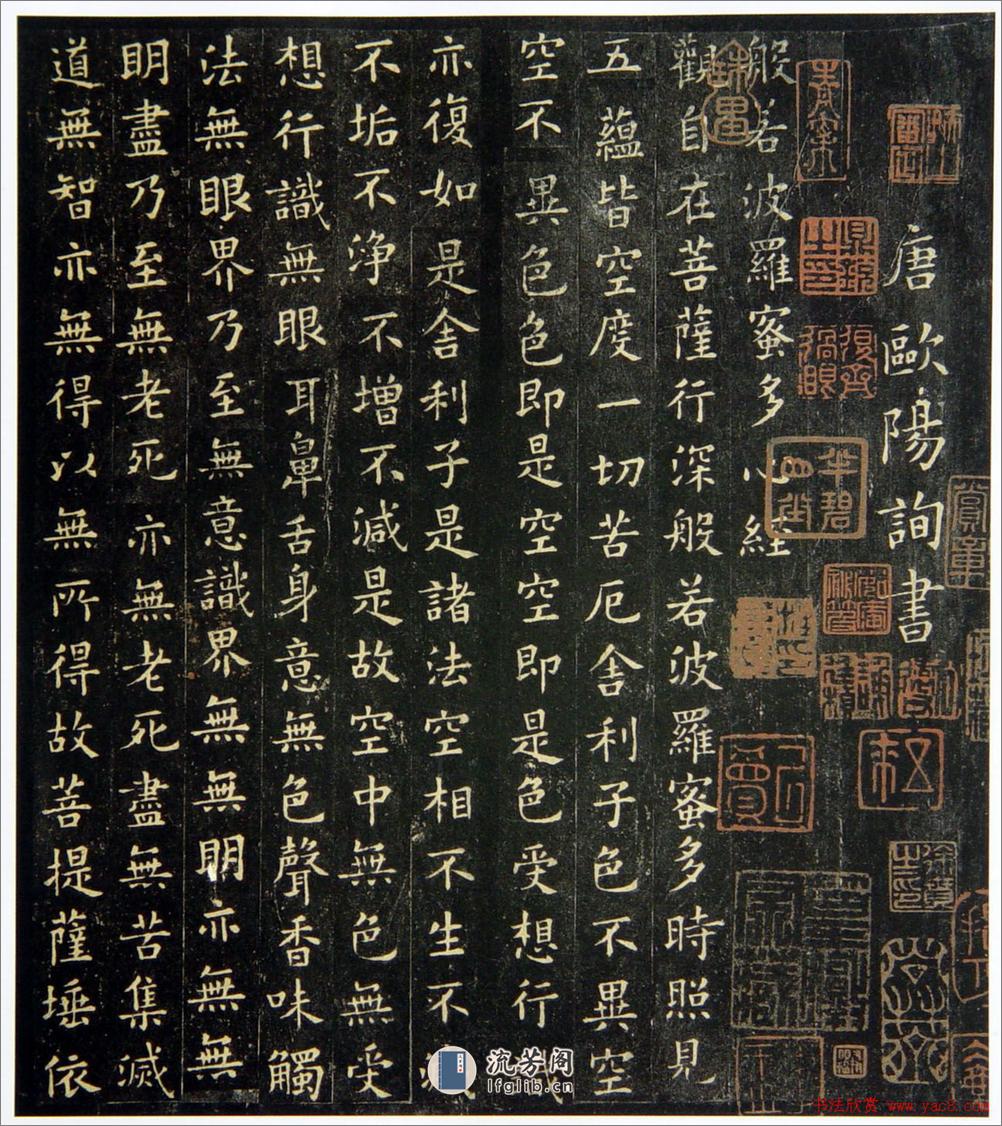 唐歐陽詢書
般若波羅蜜多心經
觀自在菩薩行深般若波羅蜜多時照見
五蘊皆空度一切苦厄舍利子色不異空
空不異色色即是空空即是色受想行
亦復如是舍利子是諸法空相不生不
不垢不淨不增不減是故空中無色無受
想行識無眼耳鼻舌身意無色聲香味觸
法無眼界乃至無意識界無無明亦無無
明盡乃至無老死亦無老死盡無苦集滅
道無智亦無無得以無所得故菩提薩埵依
流芳阁
lfglib.cn
书法欣赏 www.yac8.com